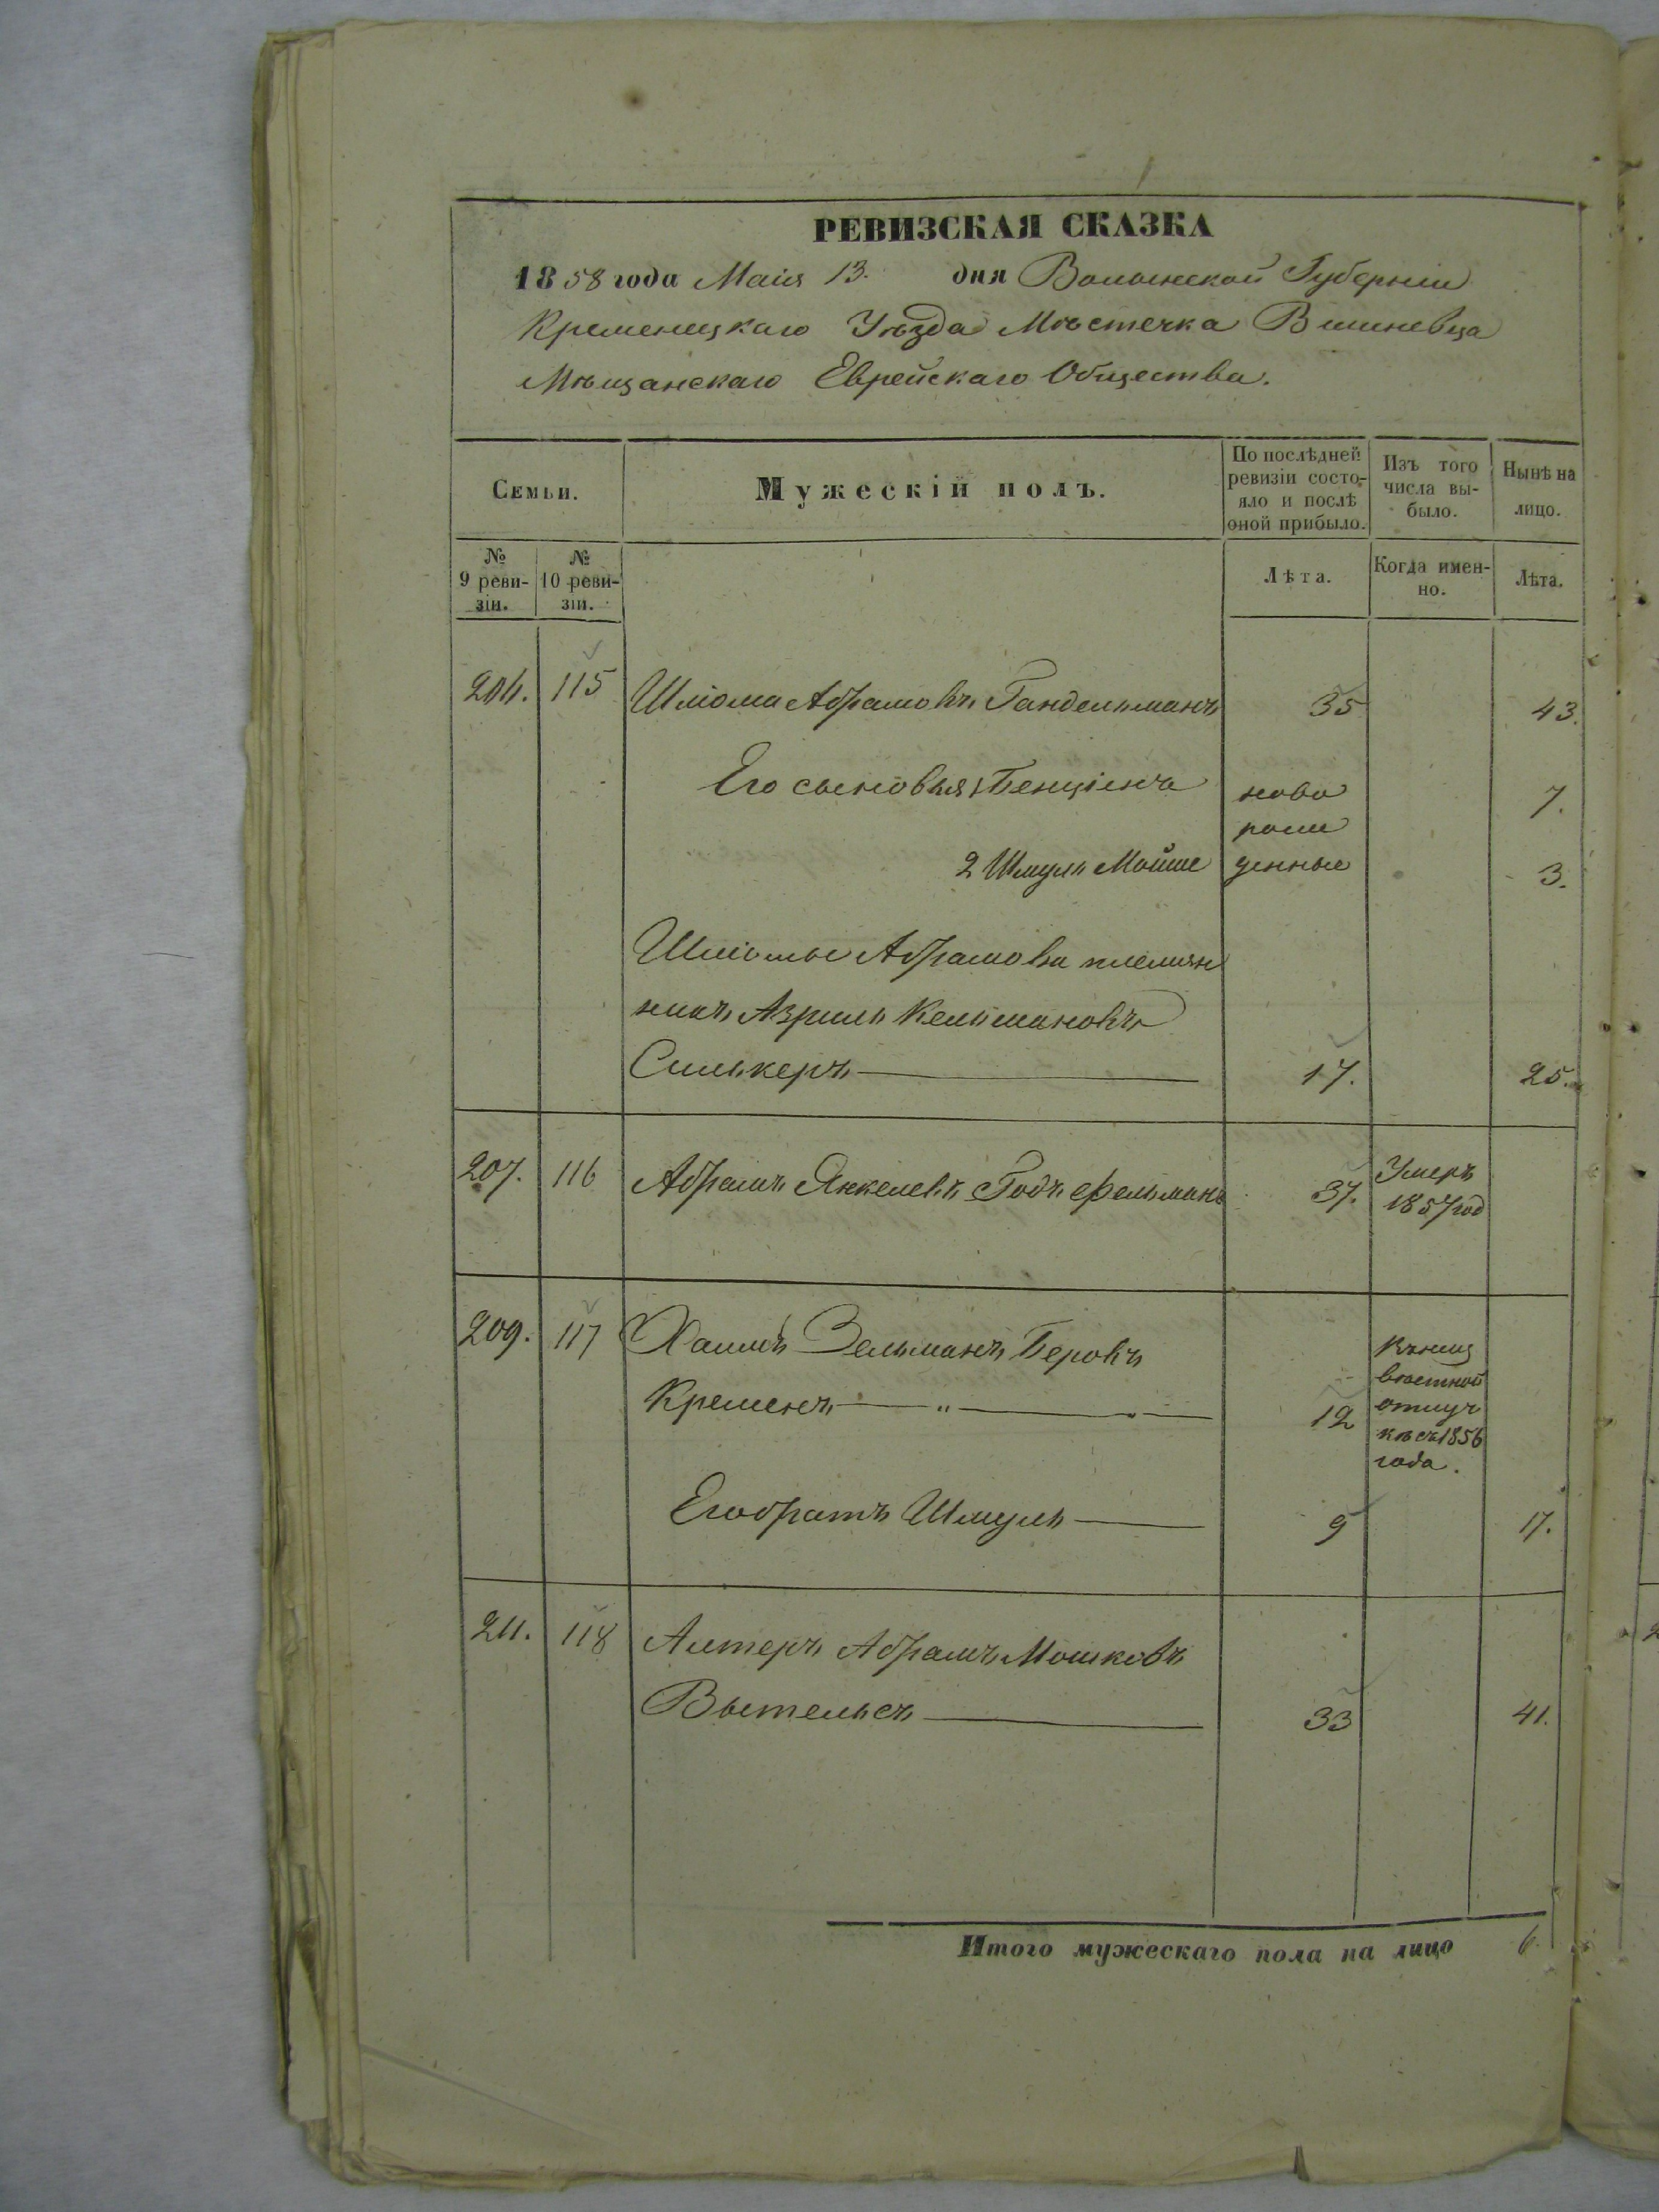 РЕВИЗСКАЯ СКАЗКА
1858 года Маія 13. дня Волынской Губерніи
Кременецкаго Уѣзда Мѣстечка Вишневца
Мѣщанскаго Еврейскаго Общества.
Семьи.
Мужескій полъ.
По послѣдней
ревизіи состо-
яло и послѣ
оной прибыло.
Изъ того
числа вы-
было.
Нынѣ на
лицо.
№
9 реви-
зіи.
№
10 реви-
зіи.
Лѣта.
Когда имен-
но.
Лѣта.
115 Шліома Абрамовъ Гандельманъ 35 43.
Его сыновья 1 Бенціенъ ново 7.
рож
2 Шмуль Мойше денные 3.
Шліомы Абрамова племян
никъ Азриль Кельмановъ
Силькеръ 17. 25.
207. 116 Абрамъ Янкелевъ Годъ фельманъ 37. Умеръ
1857 год
209. 117 Хаимъ Зельманъ Беровъ
Кременъ 12
въ неиз
вѣстной
отлуч
кѣ съ 1856
года.
Его братъ Шмуль 9 17.
211. 118 Алтеръ Абрамъ Мошковъ
Вытельсъ 33 41.
Итого мужескаго пола на лицо 6.